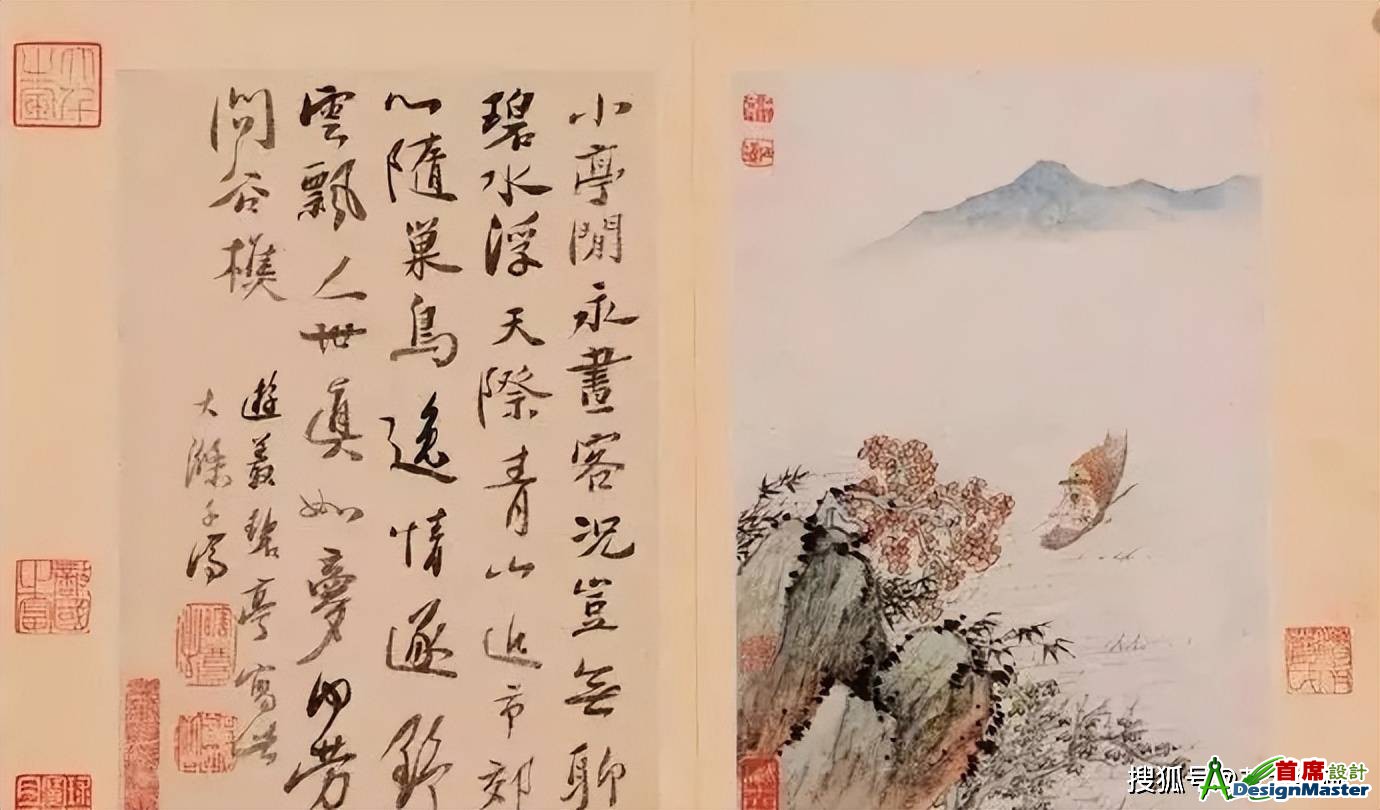 小亭閒永晝客況豈無聊
碧水浮天際青山近市郊
心隨巢鳥逸情逐野
雲飄人世真如夢何勞
問谷樵
遊碧亭寫
大滌子濟
搜狐号@
首席設計
DesignMaster